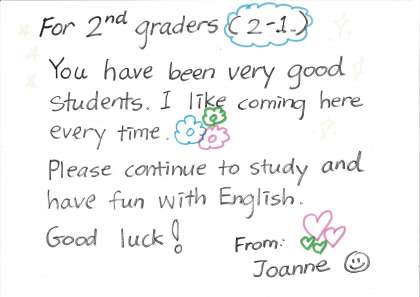 For 2nd graders (2-1.)
You have been very good
students. I like coming here
every time.
Please continue to study and
have fun with English.
Good luck!
From:
Joanne